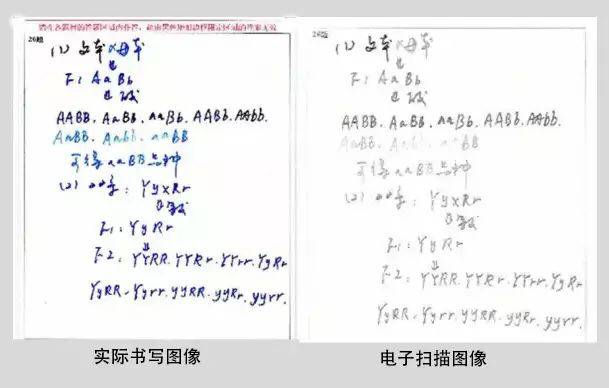 请在各题目的答题区域内作答，超出黑色矩形边框限定区域的答案无效
26题
(1) 父本×母本
↓
F1 AaBb
↓
AABB、AaBB、aaBb、AABb、AAbb、
AaBB、Aabb、aaBB
可得aaBB品种
(2) YyxRr
↓
F1: YyRr
↓
F2: YYRR、YYRr、YYrr、YyRr
YyRR、Yyrr、yyRR、yyRr、yyrr、
26题
(1) 父本×母本
↓
F1 AaBb
↓
AABB、AaBB、aaBb、AABb、AAbb、
AaBB、Aabb、aaBB
可得aaBB品种
(2) YyxRr
↓
F1: YyRr
↓
F2: YYRR、YYRr、YYrr、YyRr
YyRR、Yyrr、yyRR、yyRr、yyrr、
实际书写图像
电子扫描图像